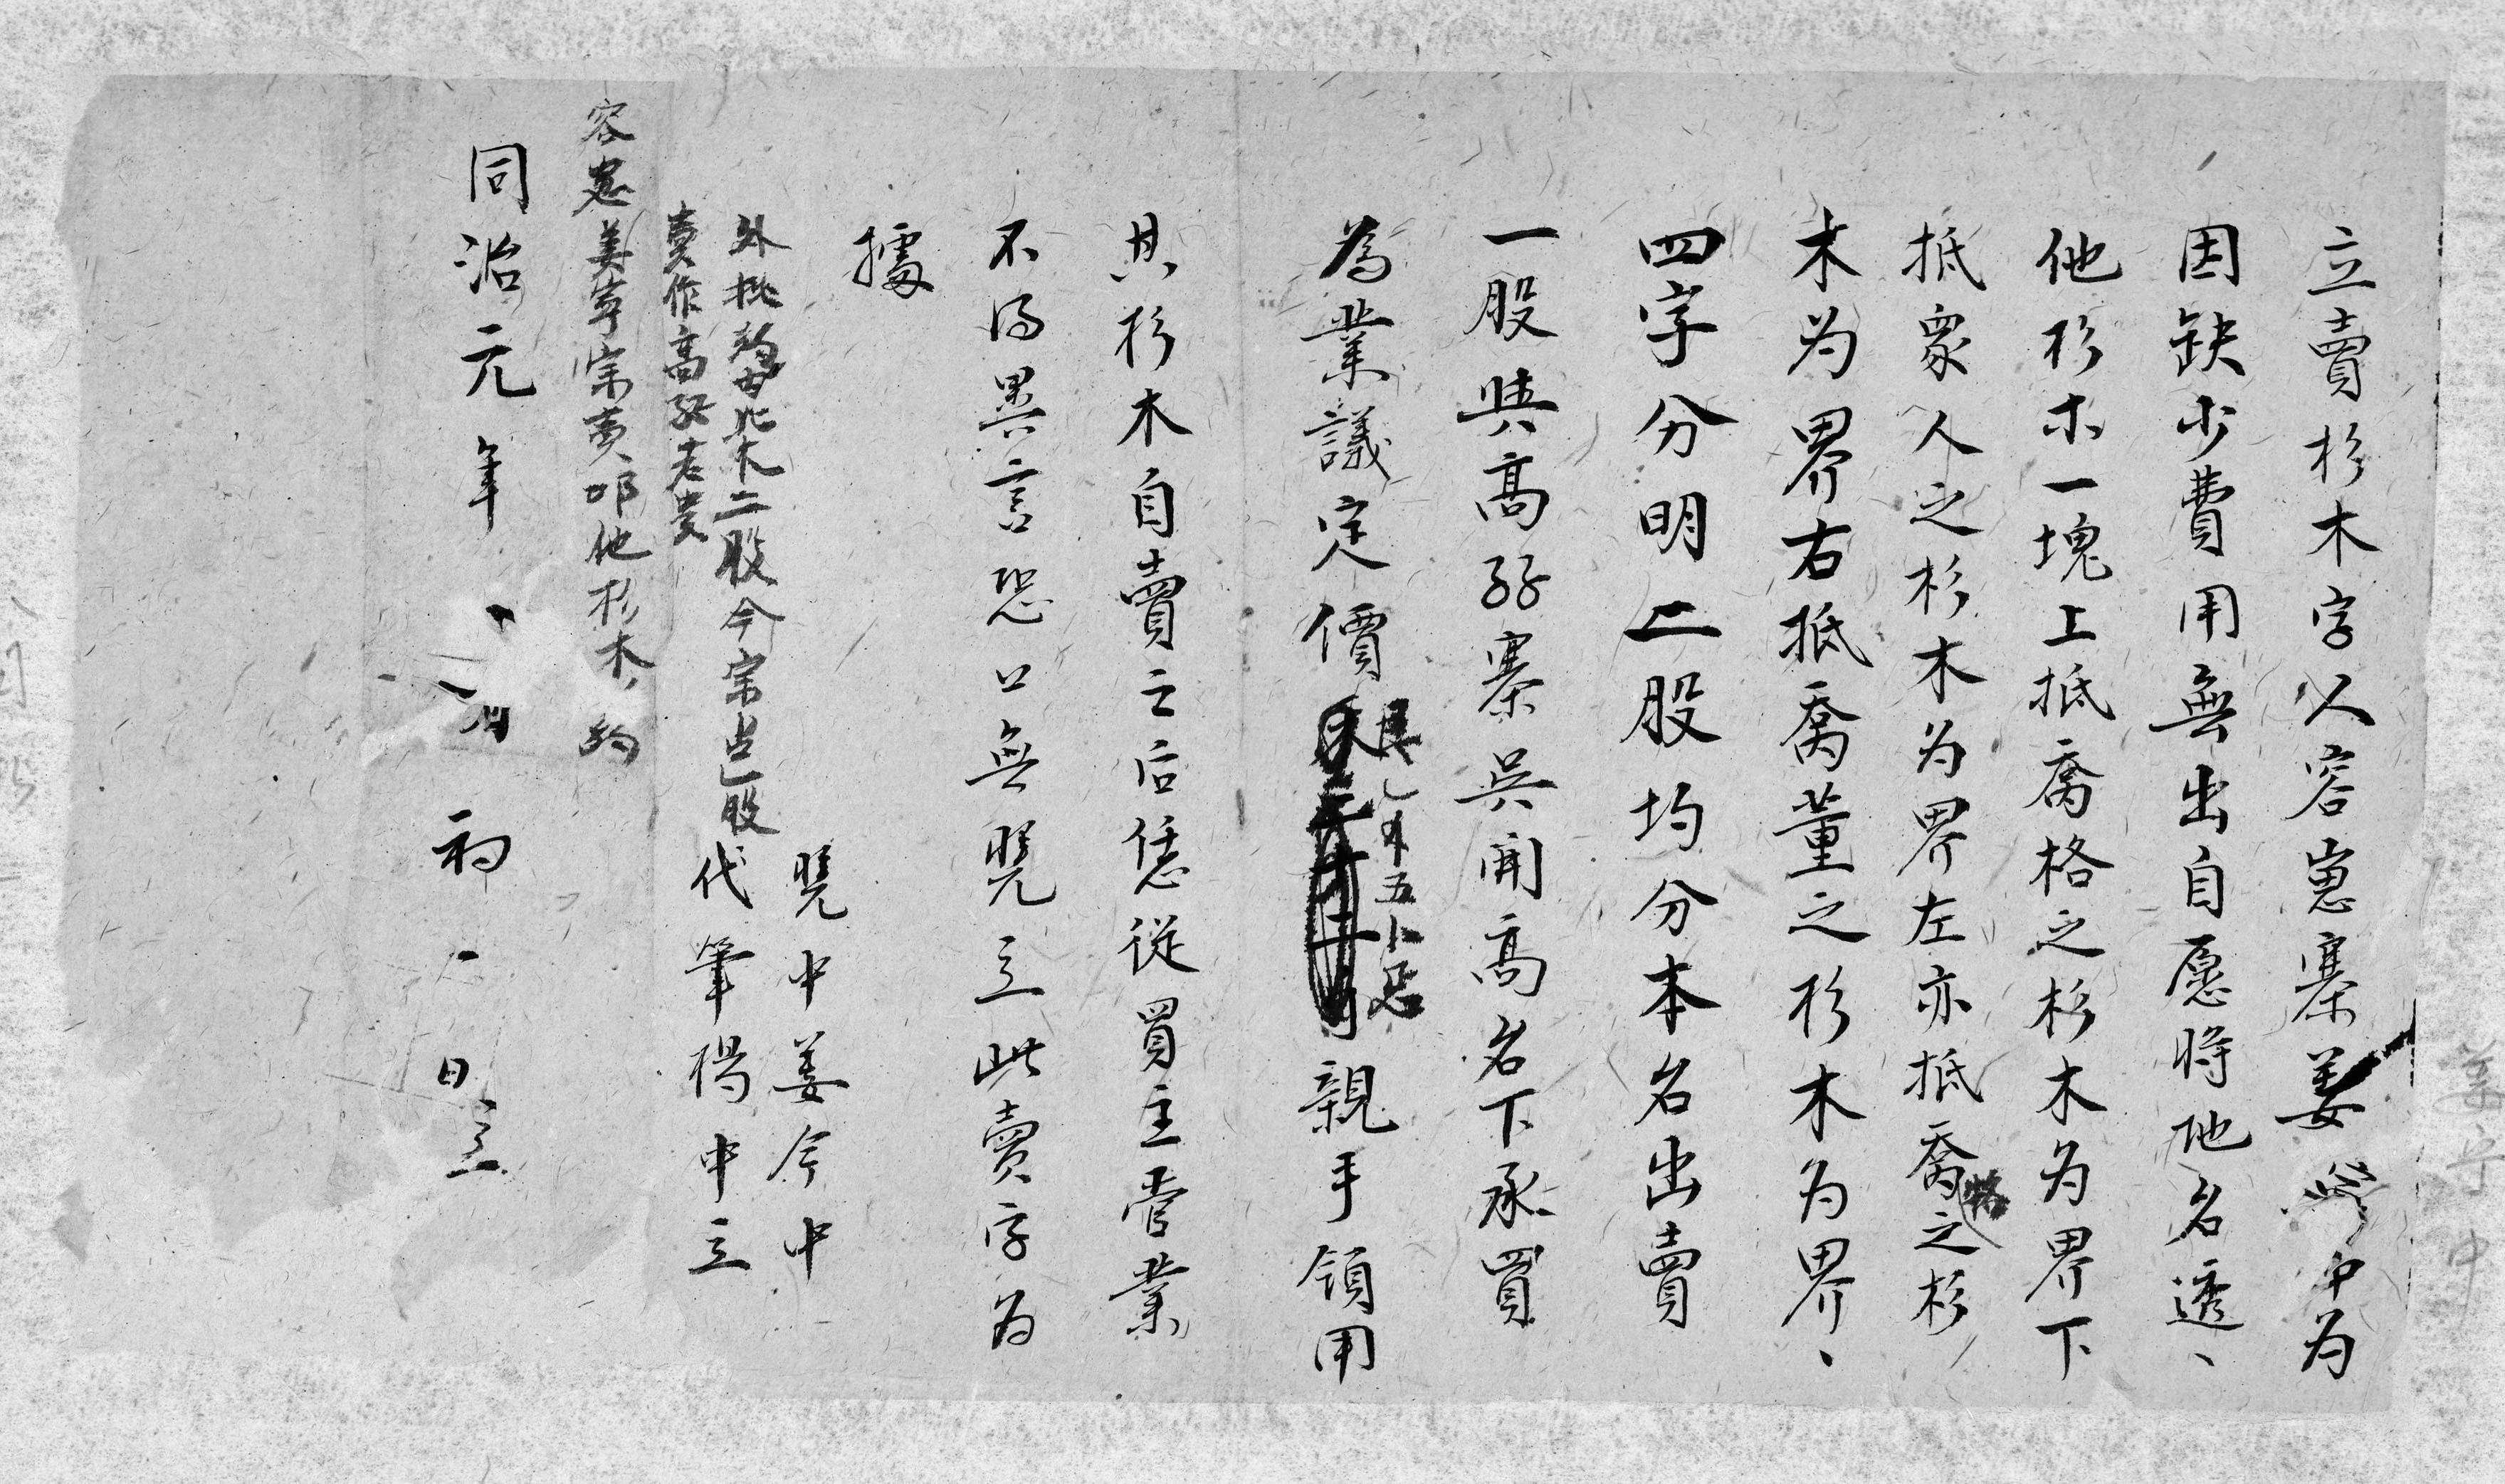 立賣杉木字人容寨姜中为
因缺少費用無出自愿将地名透、
他杉木一塊上抵喬格之杉木为界下
抵衆人之杉木为界左亦抵喬格之杉
木为界右抵喬董之杉木为界、
四字分明二股均分本名出賣
一股與髙寨吳開髙名下承買
為業議定價親手領用
其杉木自賣之后恁從買主管業
不得異言恐口無凴立此賣字为
據
凴中姜今中
外批木二股今宗占一股
代筆楊中立
賣作高老
容姜宗賣他杉木約
同治元年月初日立